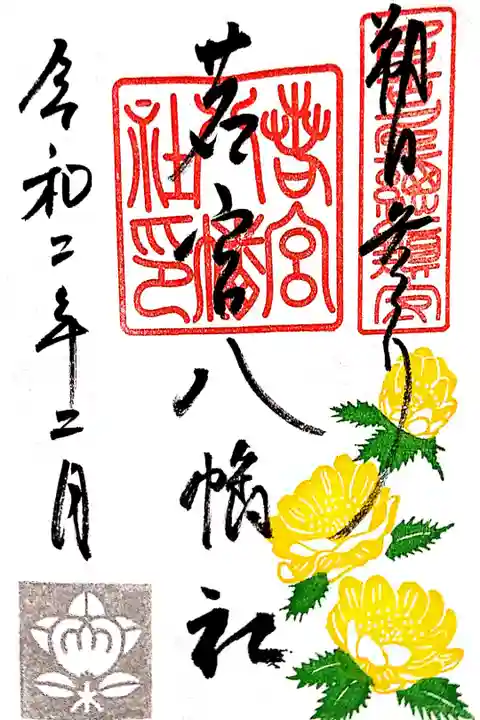 朔日参り
若宮八幡社
令和二年二月
若宮八幡社印